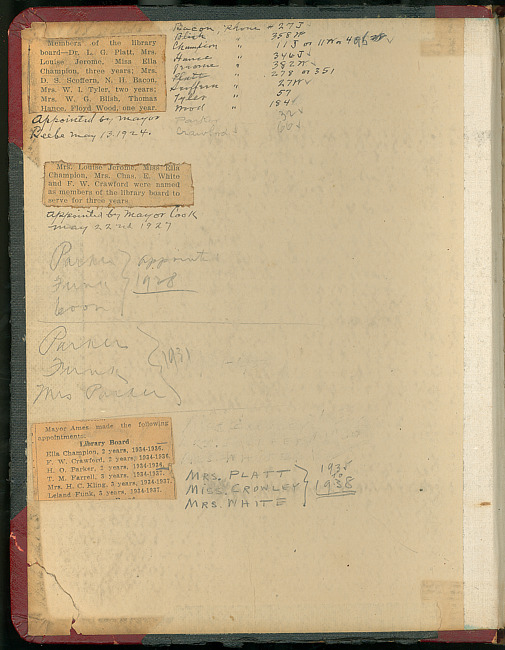 Members of the library
board—Dr. L. G. Platt, Mrs.
Louise Jerome, Miss Ella
Champion, three years; Mrs.
D. S. Scoffern, N. H. Bacon,
Mrs. W. I. Tyler, two years;
Mrs. W. G. Blish, Thomas
Hance, Floyd Wood, one year.
Appointed by Mayor
Beebe May 13, 1924.
Bacon, Phone # 27J
Blish " 358W
Champion " 11J or 11W
Hance " 346J
Jerome " 382W
Platt " 278 or 351
Scoffern " 27W
Tyler " 57
Wood " 184
Parker 32
Crawford 66
Mrs. Louise Jerome, Miss Ella
Champion, Mrs. Chas. E. White
and F. W. Crawford were named
as members of the library board to
serve for three years.
Appointed by Mayor Cook
May 22nd 1927
Parker
Funk
Coon
appointed
1928
Parker
Funk
Mrs Parker
1931
Mayor Ames made the following
appointments:
Library Board
Ella Champion, 2 years, 1934-1936.
F. W. Crawford, 2 years, 1934-1936.
H. O. Parker, 2 years, 1934-1934.
T. M. Farrell, 3 years, 1934-1937.
Mrs. H. C. Kling, 3 years, 1934-1937.
Leland Funk, 3 years, 1934-1937.
MRS. PLATT
MISS. CROWLEY
MRS. WHITE
1935
to
1938